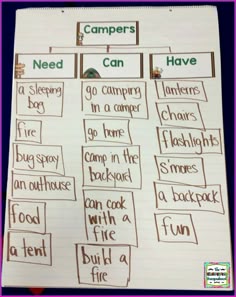 Campers
Need
Can
Have
a sleeping
bag
fire
bug spray
an outhouse
food
a tent
go camping
in a camper
go home
camp in the
backyard
can cook
with a
fire
build a
fire
lanterns
chairs
flashlights
s'mores
a backpack
fun